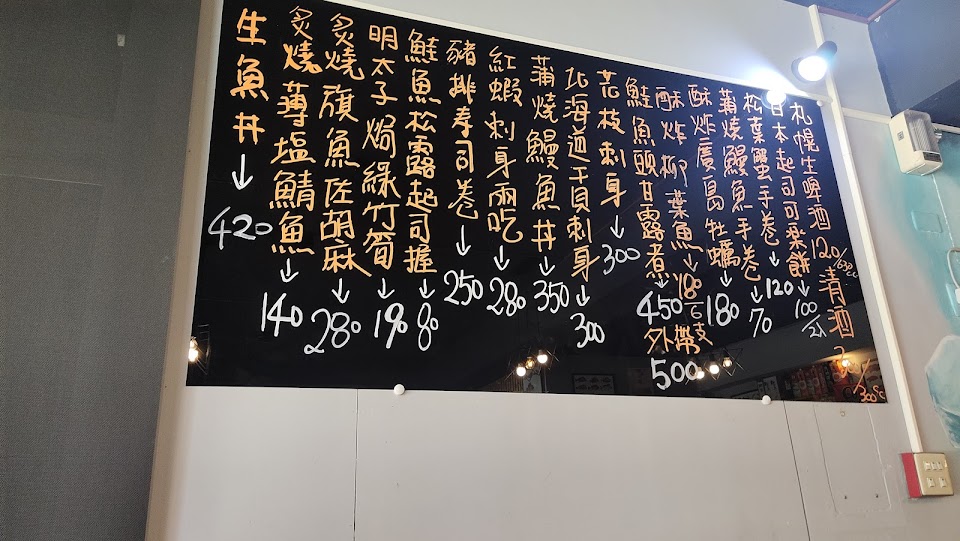 札幌生啤酒120/633cc
清酒
/300cc
日本起司可樂餅→100/2入
松葉蟹手卷→120
蒲燒鰻魚手卷→70
酥炸廣島牡蠣→180
酥炸柳葉魚→180/6支
鮭魚頭甘露煮→450
外帶500
花枝刺身→300
北海道干貝刺身→300
蒲燒鰻魚丼→350
紅蝦刺身兩吃→280
豬排壽司卷→250
鮭魚松露起司握→80
明太子焗綠竹筍→190
炙燒旗魚佐胡麻→280
炙燒薄塩鯖魚→140
生魚丼→420